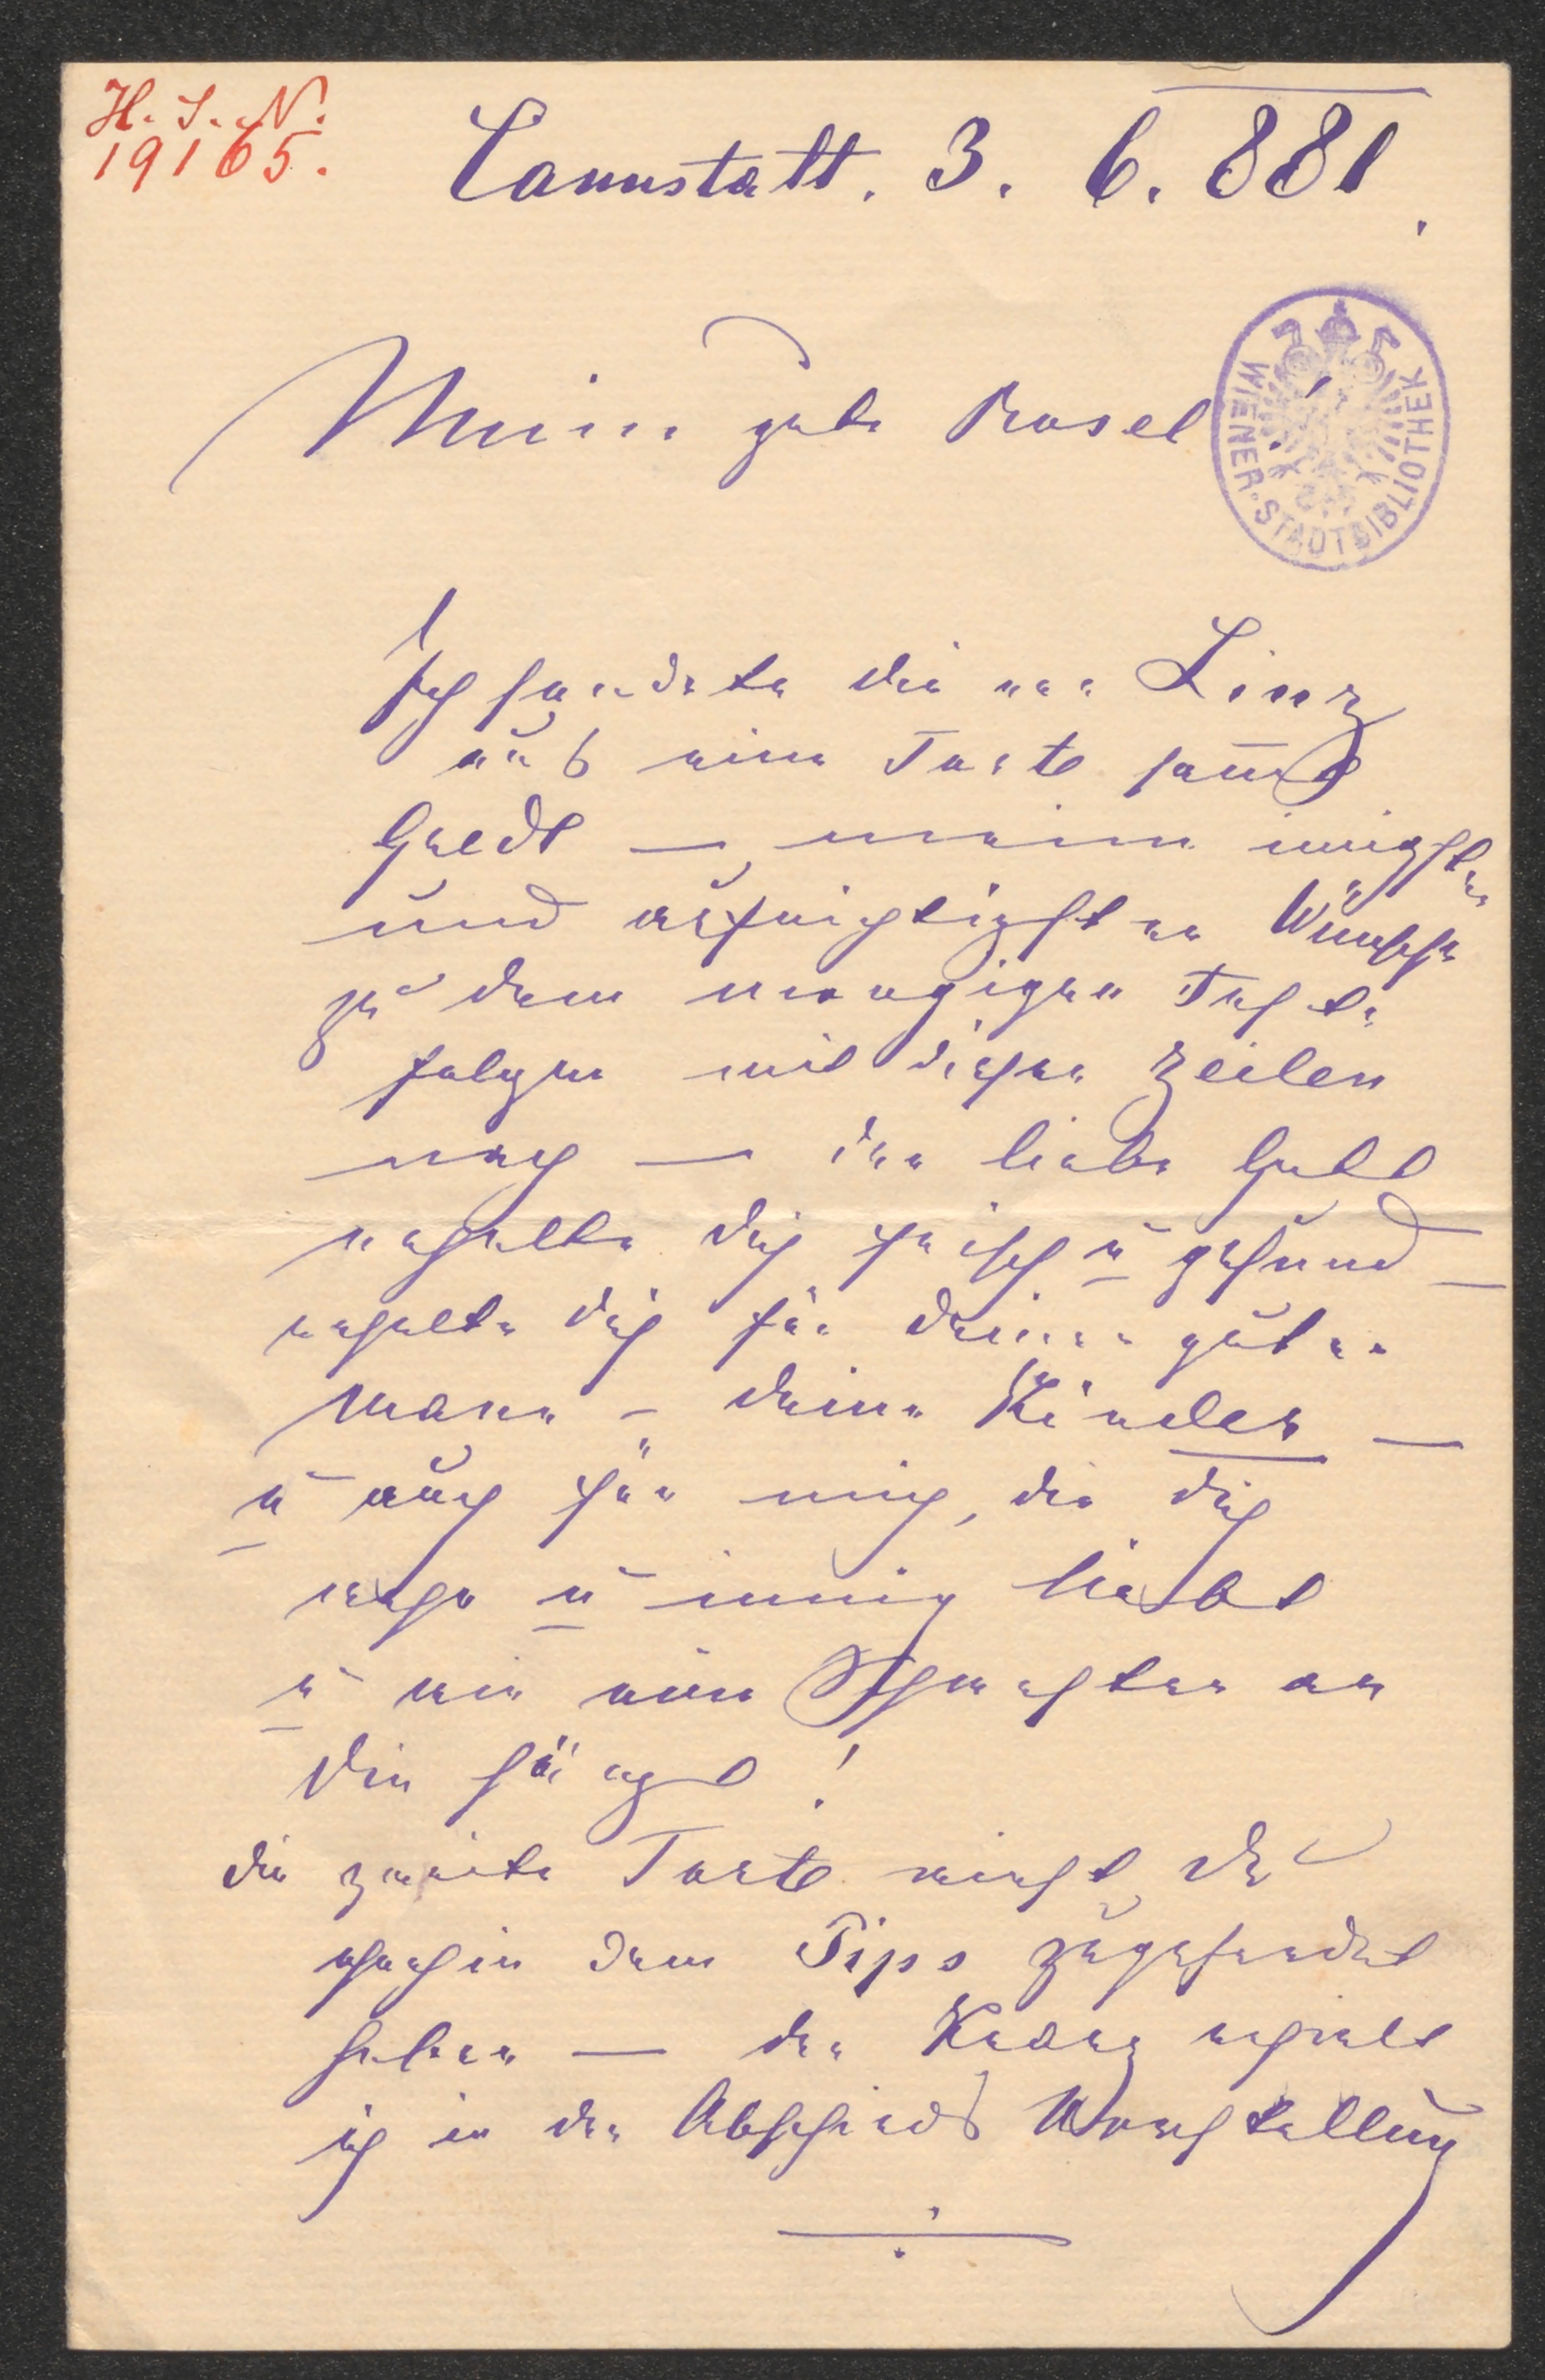 H. I. N.
19165.
Cannstatt. 3. 6. 881.
Meine gute Rosel!
WIENER-STADTBIBLIOTHEK
Ich sandte dir von Linz
aus eine Torte sammt
 — meine innigsten
und aufrichtigsten Wünsche
zu dem morgigen Feste
folgen mit diesen Zeilen
nach — der liebe Gott
erhalte dich frisch u gesund —
erhalte dich für deinen guten
Mann – deine Kinder —
u auch für mich, die dich
 u innig liebt
u wie eine Schwester an
dir hängt!
die zweite Torte wirst du
 dem Pips zugesendet
haben — den Kranz erhielt
ich in der Abschieds Vorstellung